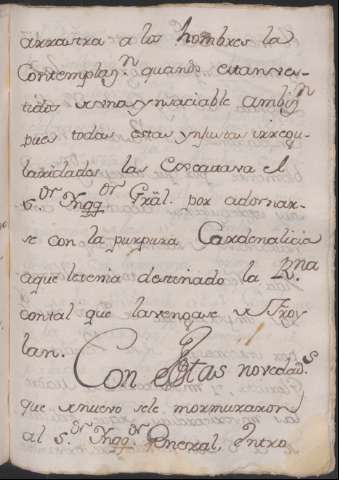 arrastra a los hombres la
Contemplaz.n quando estan ves-
tidos de una ynsaciable ambiz.n
pues todas estas ynjustas irregu-
laridades las executava el
S.or Ynqq.or Gràl. por adornar-
se con la purpura Cardenalicia
aque letenia destinado la R.na
contal que la vengase de Froy
lan.
Con estas novedad.s
que de nuevo sele mormuraron
al s.or Ynqq.or General, Entro